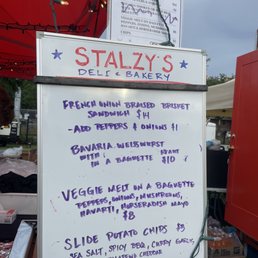 STALZY'S
DELI & BAKERY
FRENCH ONION BRAISED BRISKET
SANDWICH $14
- ADD PEPPERS & ONIONS $1
BAVARIA WEISSWURST
WITH
IN A BAGUETTE $10
VEGGIE MELT ON A BAGUETTE
PEPPERS, ONIONS, MUSHROOMS,
HAVARTI, HORSERADISH MAYO
$8
SLIDE POTATO CHIPS $3
SEA SALT, SPICY BBQ, CHERRY GARLIC,
CHEDDAR